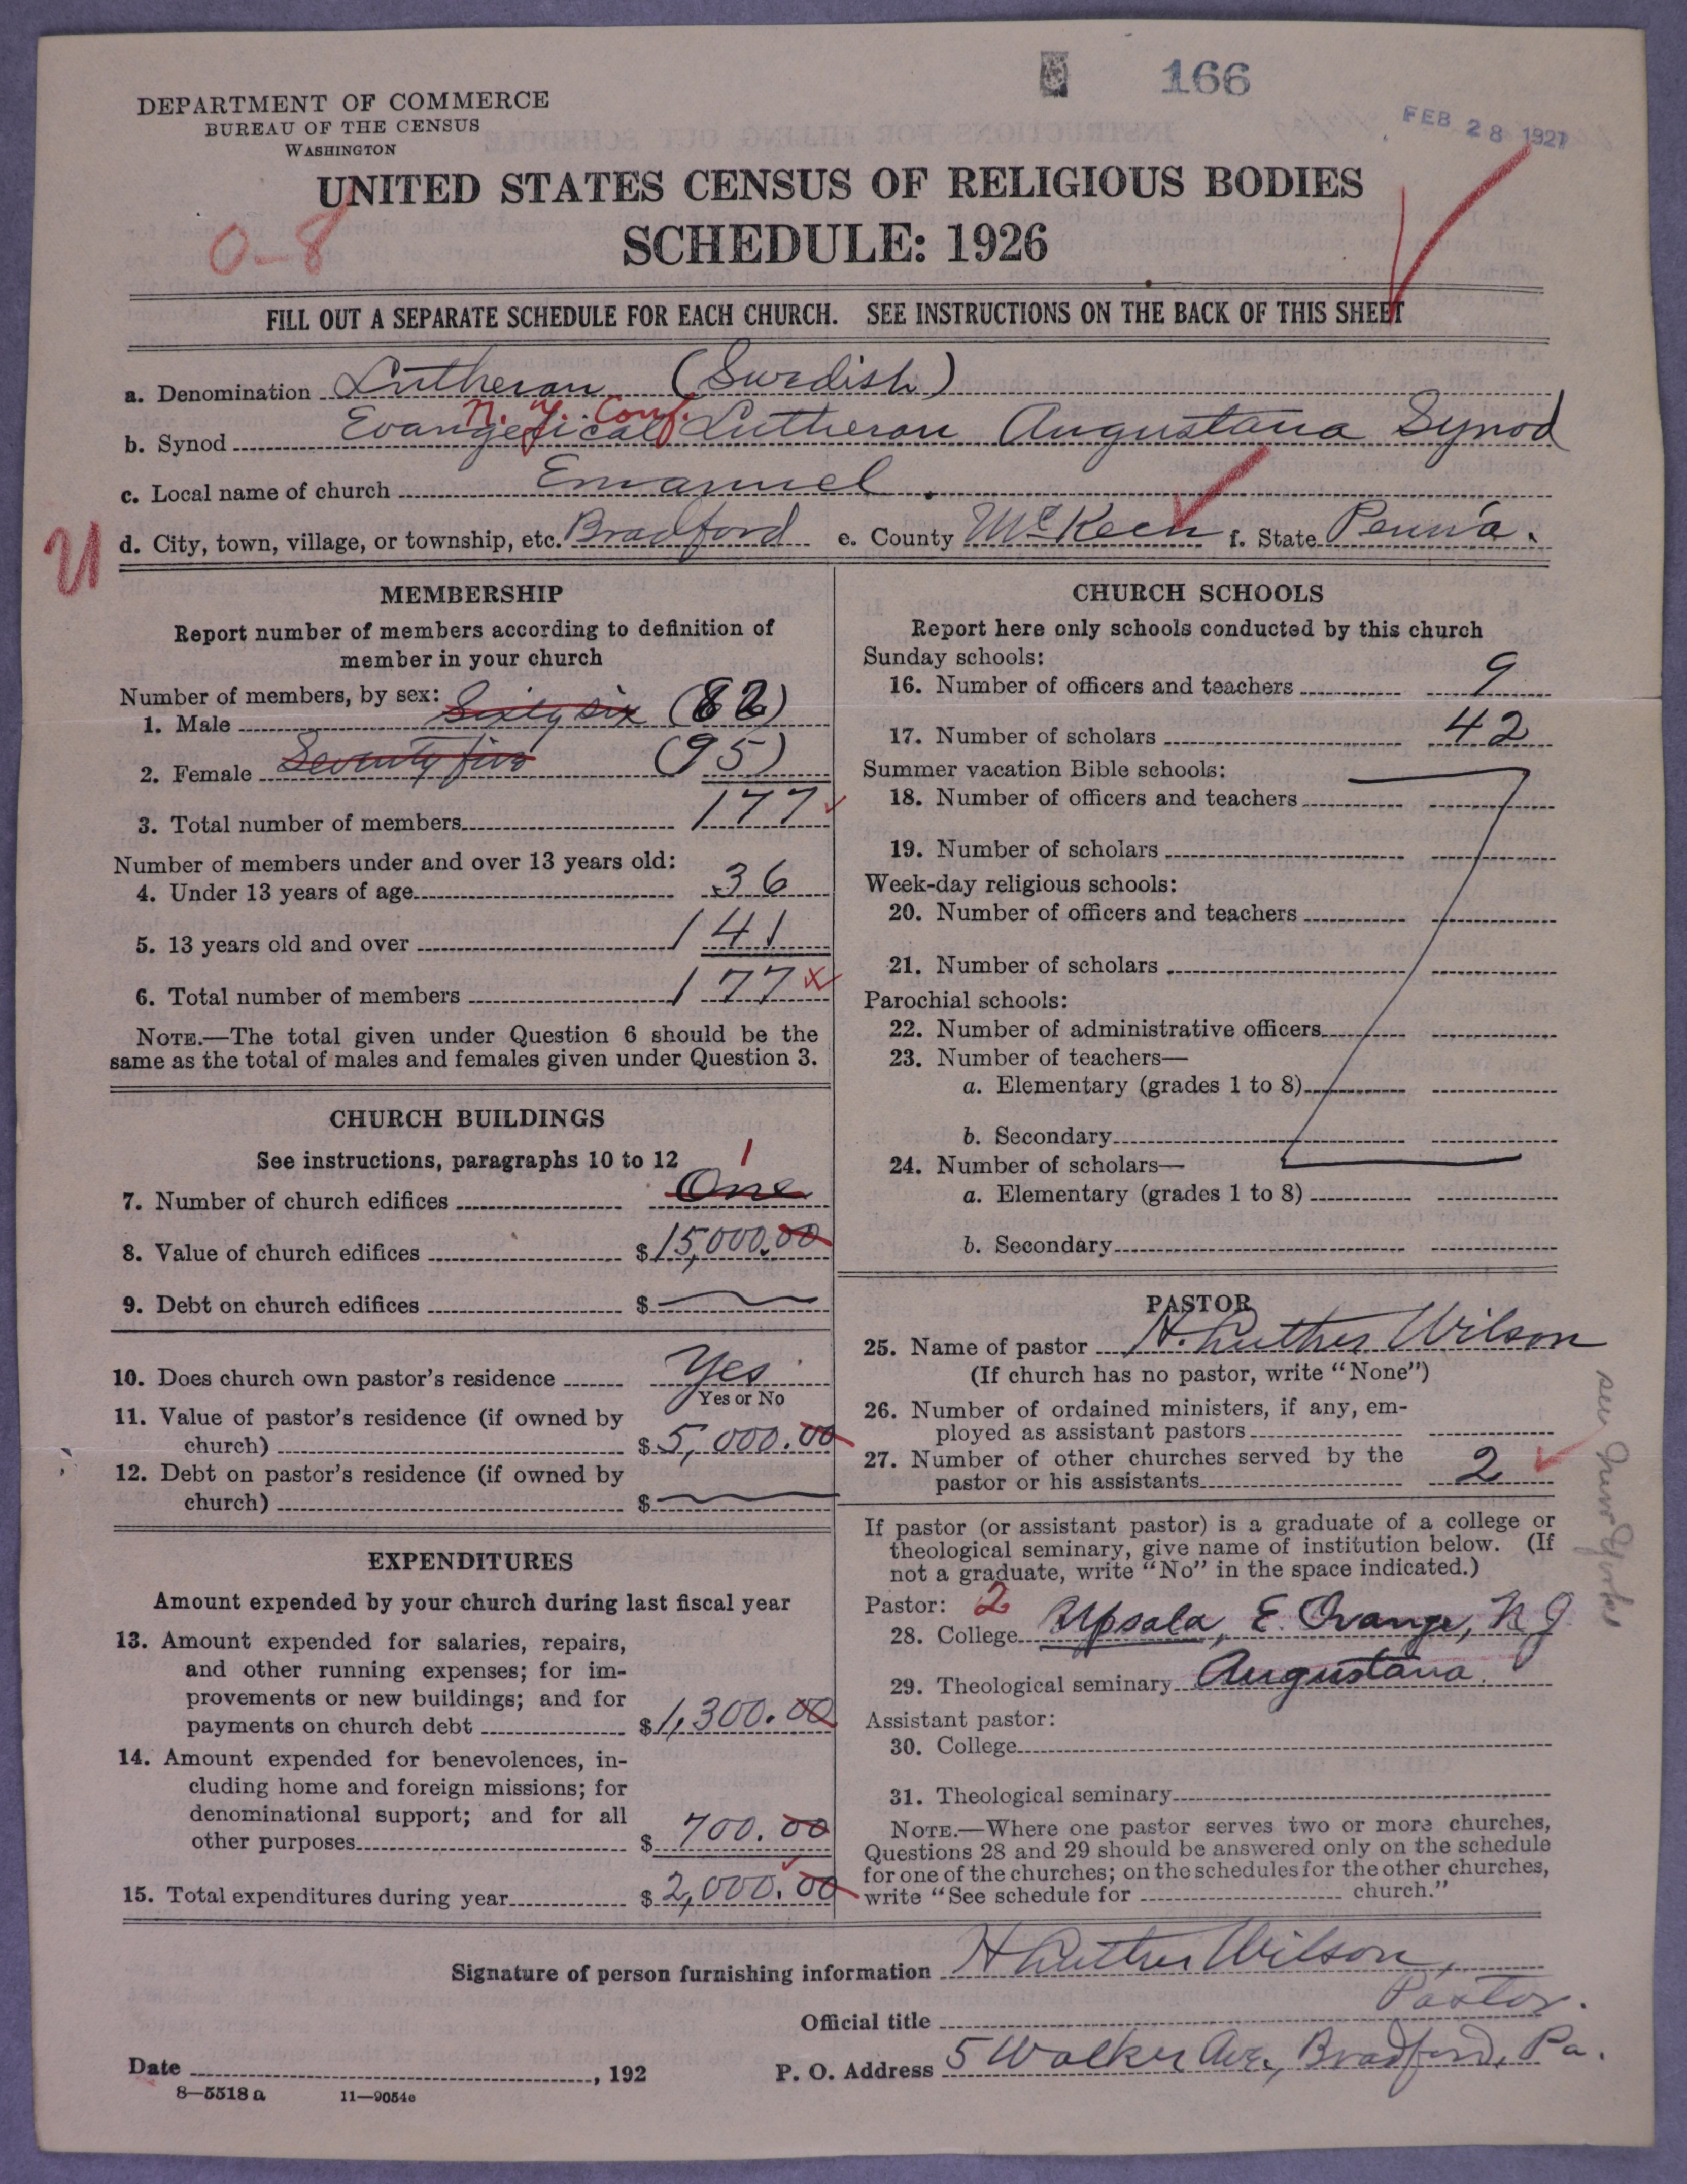 166
FEB 28 1927
DEPARTMENT OF COMMERCE
BUREAU OF THE CENSUS
WASHINGTON
UNITED STATES CENSUS OF RELIGIOUS BODIES
SCHEDULE: 1926
0-8
FILL OUT A SEPARATE SCHEDULE FOR EACH CHURCH. SEE INSTRUCTIONS ON THE BACK OF THIS SHEET
a. Denomination Lutheran (Swedish)
N. Y. Conf.
b. Synod Evangelical Lutheran Augustana Synod
c. Local name of church Emanuel.
U
d. City, town, village, or township, etc. Bradford e. County McKeen f. State Penn'a.
MEMBERSHIP
Report number of members according to definition of
member in your church
Number of members, by sex:
1. Male Sixty six (82)
2. Female Seventy five (95)
3. Total number of members 177
Number of members under and over 13 years old:
4. Under 13 years of age 36
5. 13 years old and over 141
6. Total number of members 177
NOTE.—The total given under Question 6 should be the
same as the total of males and females given under Question 3.
CHURCH BUILDINGS
See instructions, paragraphs 10 to 12
1
7. Number of church edifices One
8. Value of church edifices $15,000.00
9. Debt on church edifices $
10. Does church own pastor's residence Yes
Yes or No
11. Value of pastor's residence (if owned by
church) $5,000.00
12. Debt on pastor's residence (if owned by
church) $
EXPENDITURES
Amount expended by your church during last fiscal year
13. Amount expended for salaries, repairs,
and other running expenses; for im-
provements or new buildings; and for
payments on church debt $1,300.00
14. Amount expended for benevolences, in-
cluding home and foreign missions; for
denominational support; and for all
other purposes $700.00
15. Total expenditures during year $2,000.00
CHURCH SCHOOLS
Report here only schools conducted by this church
Sunday schools:
16. Number of officers and teachers 9
17. Number of scholars 42
Summer vacation Bible schools:
18. Number of officers and teachers
19. Number of scholars
Week-day religious schools:
20. Number of officers and teachers
21. Number of scholars
Parochial schools:
22. Number of administrative officers
23. Number of teachers—
a. Elementary (grades 1 to 8)
b. Secondary
24. Number of scholars—
a. Elementary (grades 1 to 8)
b. Secondary
PASTOR
25. Name of pastor H. Luther Wilson
(If church has no pastor, write "None")
26. Number of ordained ministers, if any, em-
ployed as assistant pastors
27. Number of other churches served by the
pastor or his assistants 2
see New York
If pastor (or assistant pastor) is a graduate of a college or
theological seminary, give name of institution below. (If
not a graduate, write "No" in the space indicated.)
Pastor: 2
28. College Upsala, E. Orange, N J
29. Theological seminary Augustana.
Assistant pastor:
30. College
31. Theological seminary
NOTE.—Where one pastor serves two or more churches,
Questions 28 and 29 should be answered only on the schedule
for one of the churches; on the schedules for the other churches,
write "See schedule for church."
Signature of person furnishing information H Luther Wilson,
Official title Pastor.
Date , 192
P. O. Address 5 Walker Ave., Bradford, Pa.
8—5518 a 11—9054e